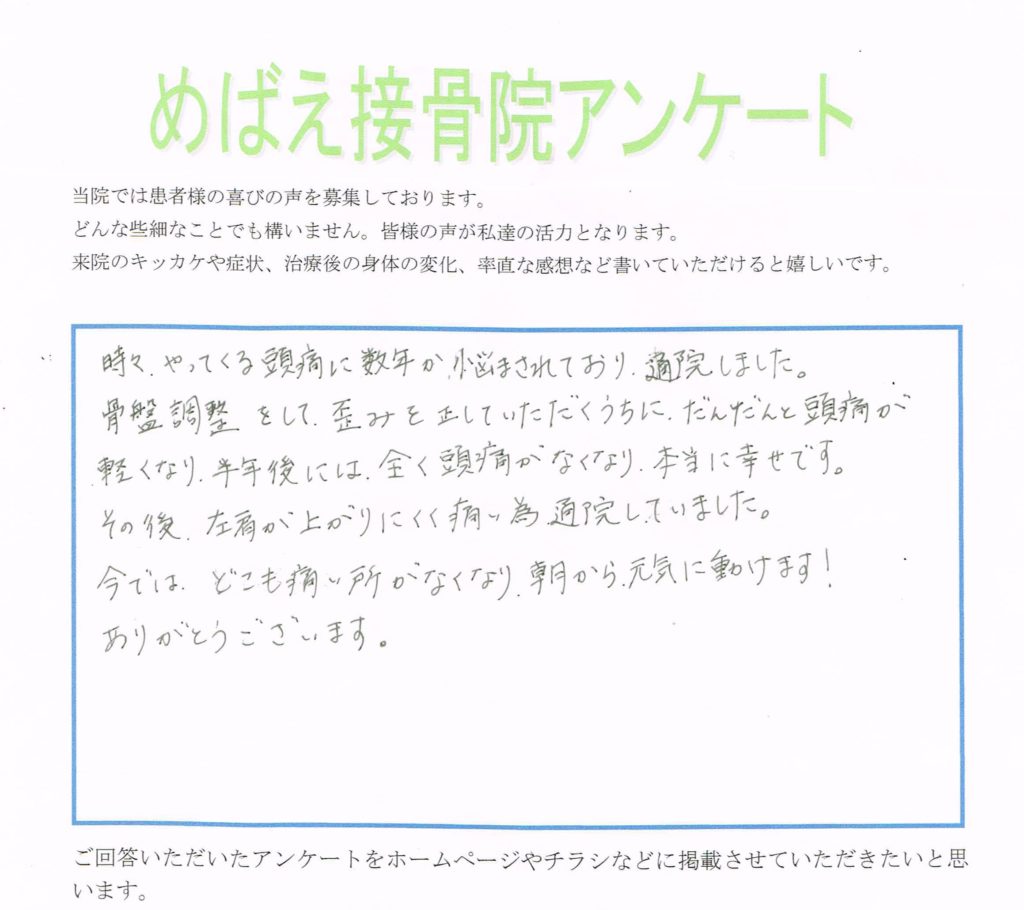 めばえ接骨院アンケート
当院では患者様の喜びの声を募集しております。
どんな些細なことでも構いません。皆様の声が私達の活力となります。
来院のキッカケや症状、治療後の身体の変化、率直な感想など書いていただけると嬉しいです。
時々、やってくる頭痛に数年か、悩まされており、通院しました。
骨盤調整をして、歪みを正していただくうちに、だんだんと頭痛が
軽くなり、半年後には、全く頭痛がなくなり、本当に幸せです。
その後、左肩が上がりにくく痛い為、通院していました。
今では、どこも痛い所がなくなり、朝から、元気に動けます!
ありがとうございます。
ご回答いただいたアンケートをホームページやチラシなどに掲載させていただきたいと思
います。